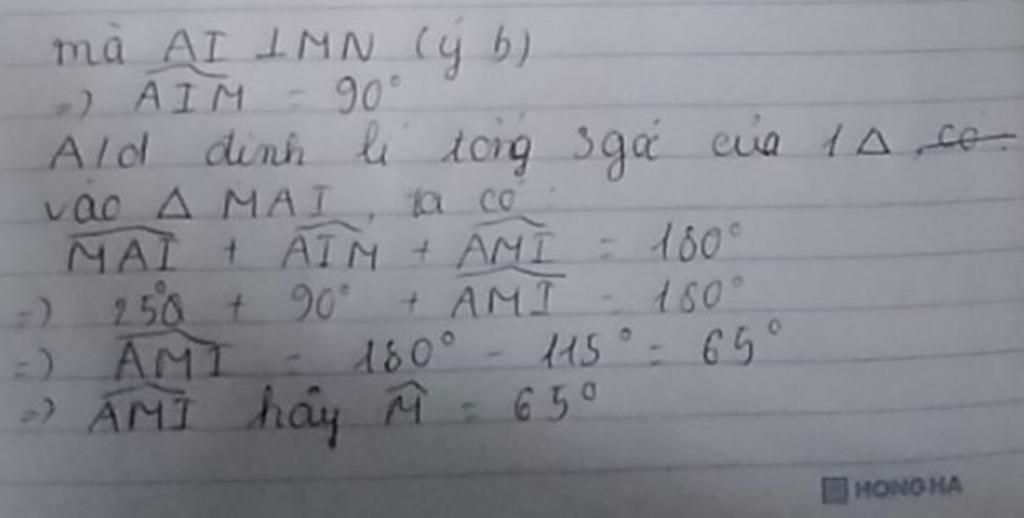 mà AI ⊥ MN (ý b)
=) AIM = 90°
A/d định lí tổng 3 góc của 1 Δ có
vào Δ MAI, ta có:
MAI + AIM + AMI = 180°
=) 25° + 90° + AMI = 180°
=) AMI = 180° - 115° = 65°
=) AMI hây M = 65°
HONG HA